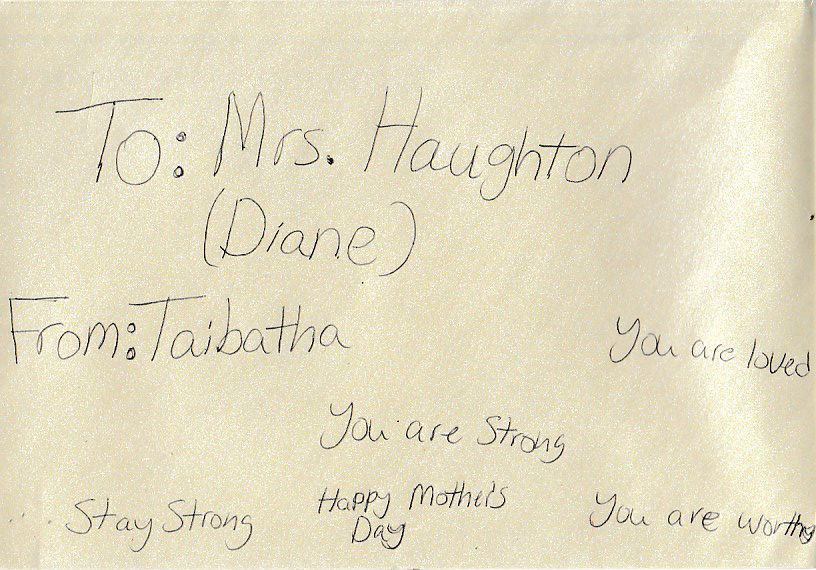 To: Mrs. Haughton
(Diane)
From: Taibatha
You are loved
You are Strong
Stay Strong
Happy Mother's
Day
You are worthy